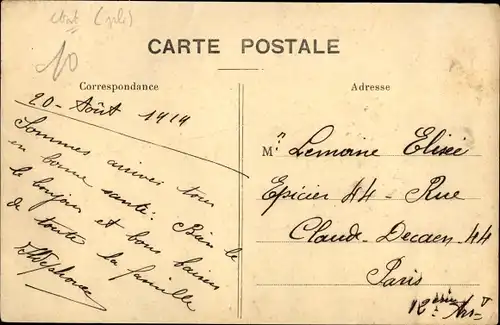 10
CARTE POSTALE
Correspondance
Adresse
20 - Août 1914
Sommes arrivés tous
en bonne santé. Bien le
le bonjour et bons baisers
de toute la famille
M. Lemoine Elisée
Epicier 44 - Rue
Claude - Decaen - 44
Paris
12ème Arrt